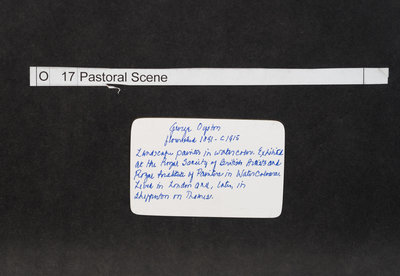 O 17 Pastoral Scene
George Oyston
flourished 1891 - c1915
Landscape painter in watercolour. Exhibited
at the Royal Society of British Artists and
Royal Institute of Painters in WaterColours.
Lived in London and, later, in
Shepperton on Thames.